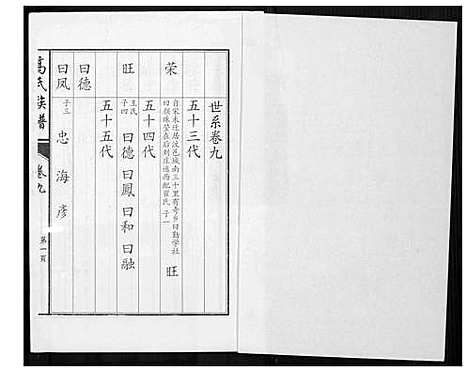 世系卷九
五十三代
荣 自宋末迁居汶邑城南三十里有奇乡曰勤学社
曰 子一 旺
五十四代
旺 王氏
子四 曰德 曰鳳 曰和 曰融
五十五代
曰德
曰凤 子三 忠 海 彦
高氏族譜
卷九
第一頁